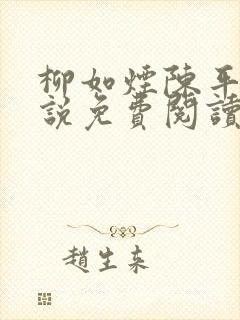 柳如煙陳平
說免費閱讀
趙生來